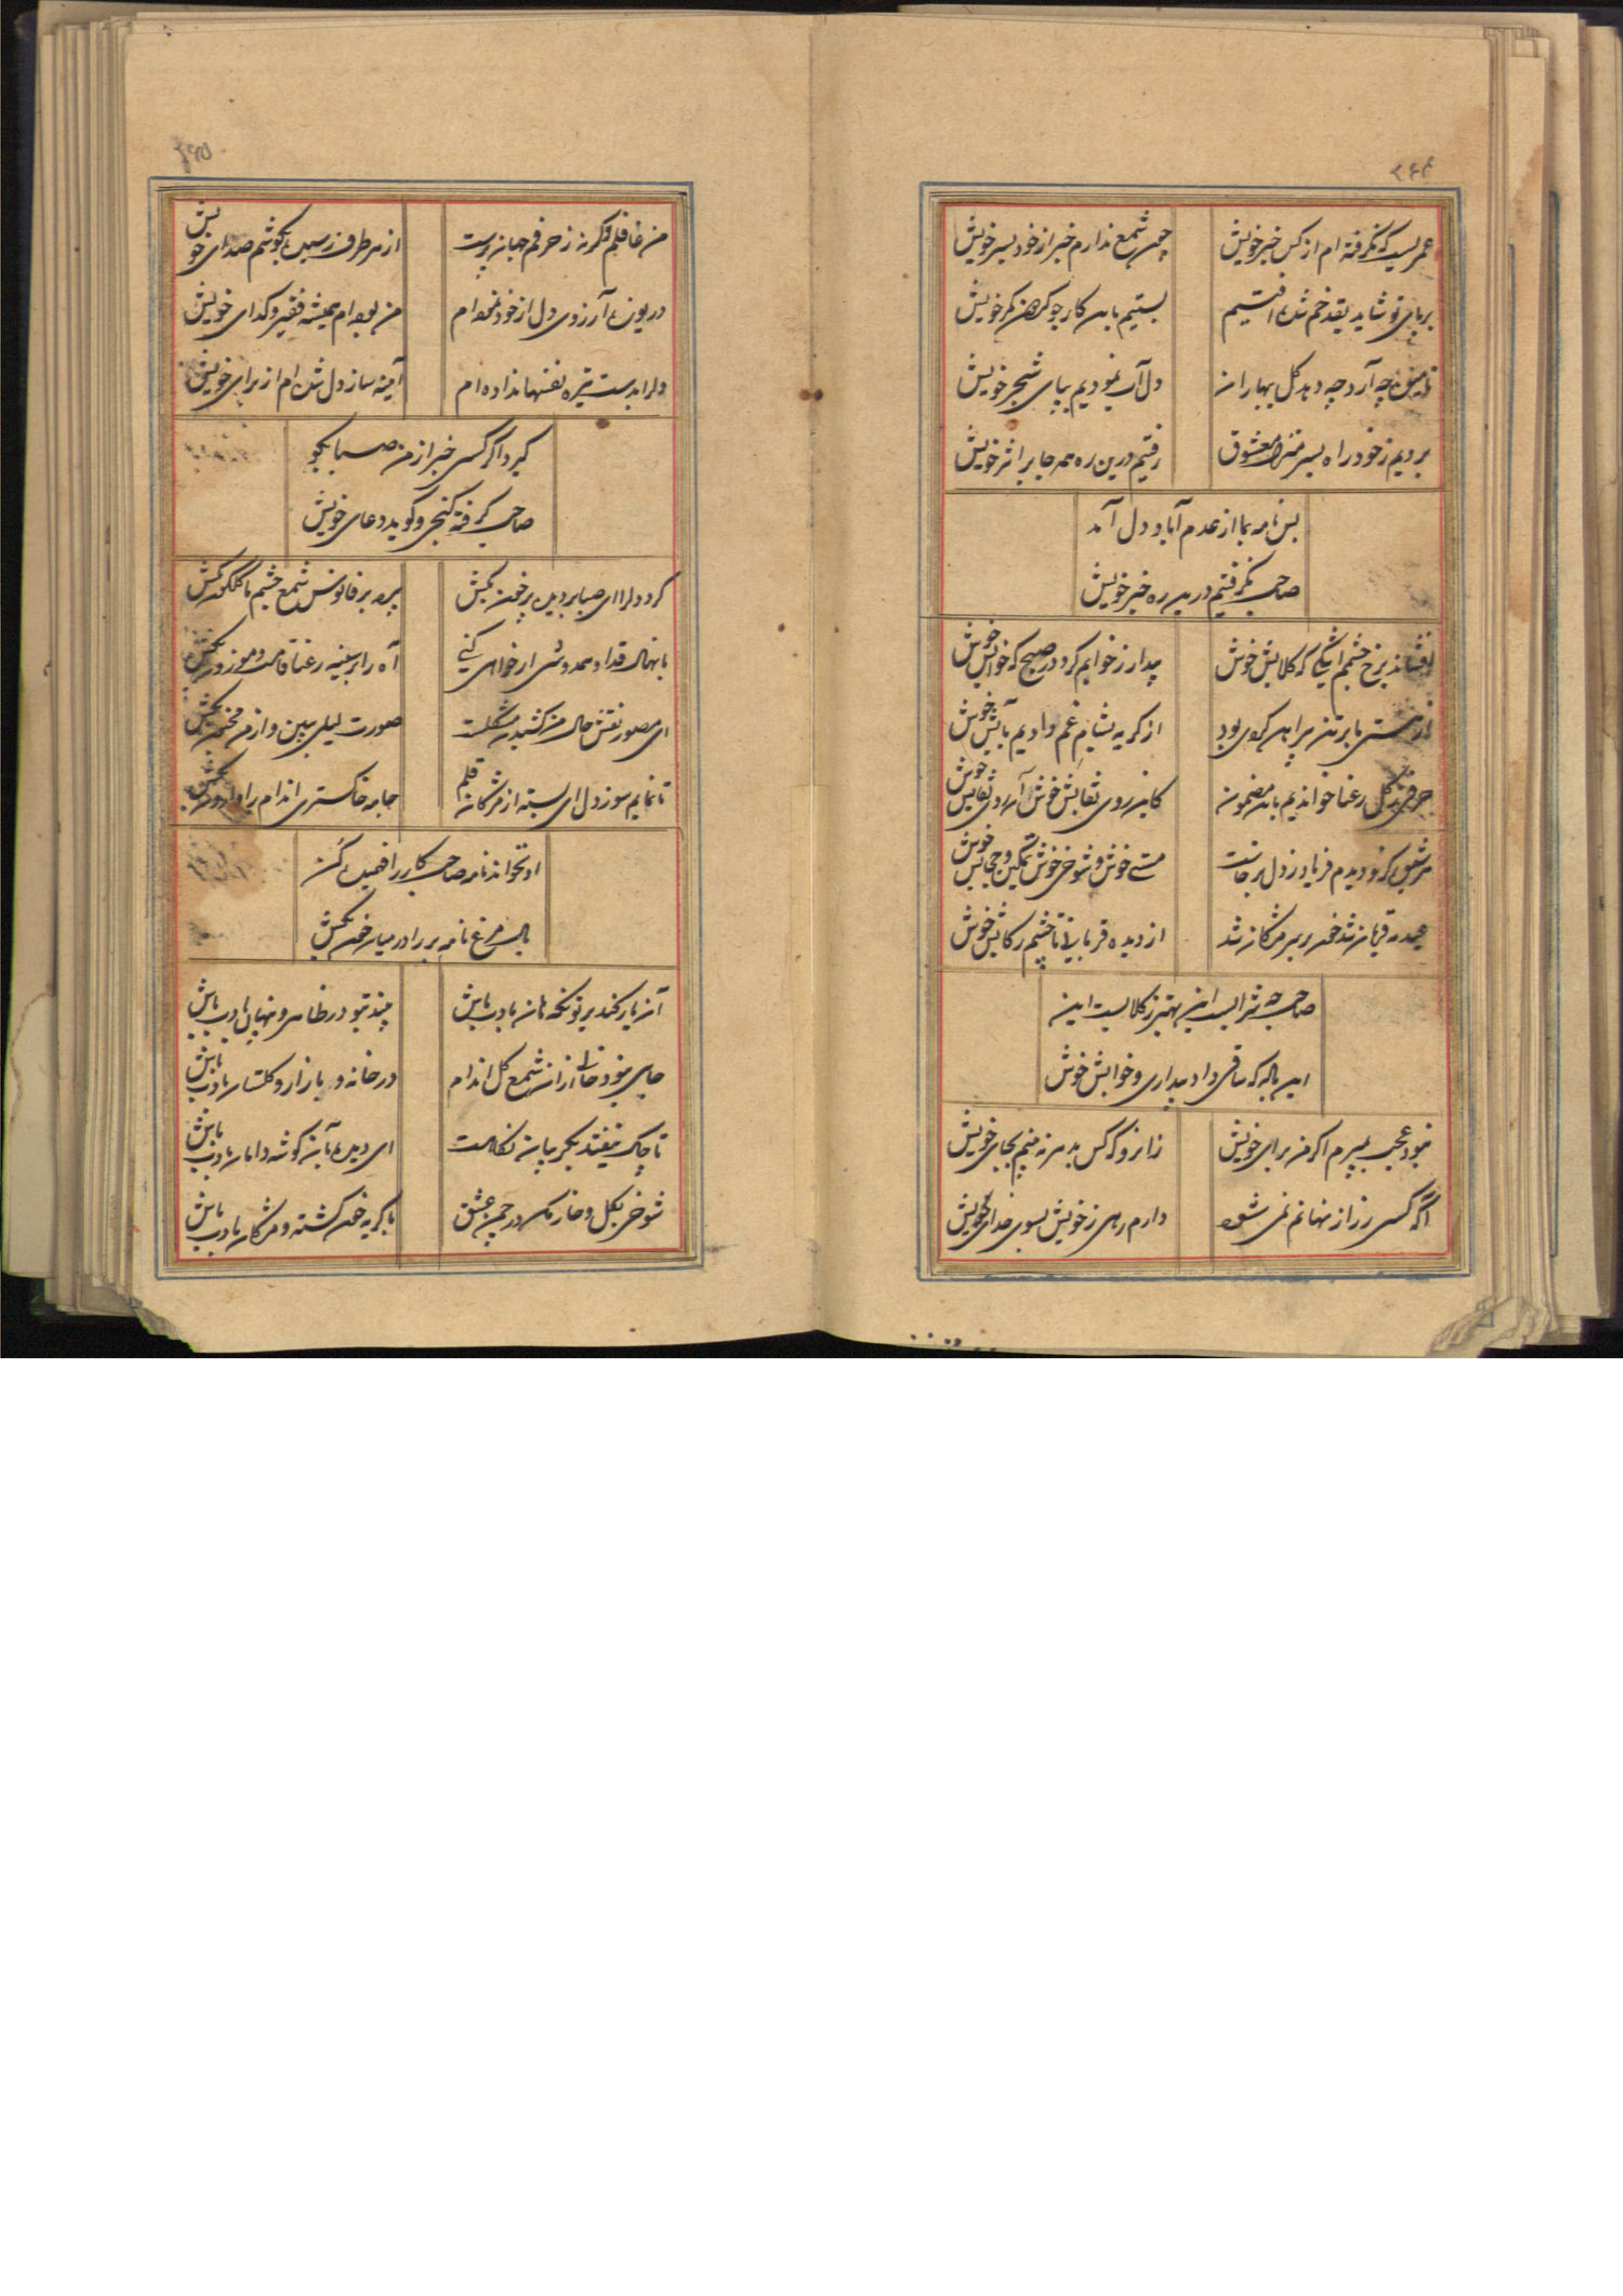 عمریست که نگرفته ام از کس خبر خویش
چون شمع ندارم خبر از خود بسر خویش
بر پای تو شاید بقد خم شده افتیم
بستیم باین کار چو کردن کمر خویش
چه آرد چه دهد گل بهاران
دل آب نمودیم بپای شجر خویش
بردیم ز خود راه بسر منزل معشوق
رفتیم درین ره همه جا بر اثر خویش
بس نامه بما از عدم آباد دل آمد
صاحب نگرفتیم درین ره خبر خویش
برخ خشم که کلابش خوش
بیدار ز خوابم کرد در صبح که خوابش خوش
هستی ما بر تن پیراهن بود
از گریه بشام غم دادیم آبش خوش
گل رعنا خواندیم باین مضمون
کاین روی نقابش خوش آن روی نقابش خوش
دیدم فریاد ز دل برخاست
مستی خوش و شوخی خوش تمکین و حجابش خوش
عید قربان شد خون بر سر مژگان شد
از دیده قربانی تا خشم رکابش خوش
صاحب چه شرابست این بهتر ز گلابست این
این باده که ساقی داد بیداری و خوابش خوش
نبود عجب بمیرم اگر من برای خویش
زانرو که کس بدهر نه بینم بجای خویش
آگه کسی ز راز نهانم نمی شود
دارم رهی ز خویش بسوی خدای خویش
من غافلم وگرنه ز حرفم جهان پرست
از هر طرف رسیده بگوشم صدای خویش
دریوزه آرزوی دل از خود نموده ام
من بوده ام همیشه فقیر و گدای خویش
دل را بدست تیره نفسها نداده ام
آیینه ساز دل شده ام از برای خویش
گیرد اگر کسی خبر از من صبا بگو
صاحب گرفته کنجی و گوید دعای خویش
گرد دل را ای صبا بر دیده پر خون بکش
پرده بر فانوس شمع خشم ما گلگون بکش
با نهال قد او همدوشی ار خواهی کنی
آه را بر سینه رعنا قامت و موزون بکش
ای مصور نقش حال من کشیدن مشکلست
صورت لیلی ببین و از من مجنون بکش
تا نمایم سوز دل ای بسته از مژگان قلم
جامه خاکستری اندام را
او نخواند نامه صاحب کار را فهمیده کن
بال مرغ نامه بر را در میان خون بکش
آن یار کند بر تو نگه هان بادب باش
بیند بتو در ظاهر و پنهان بادب باش
جای نبود خالی از آن شمع گل اندام
در خانه و بازار و گلستان بادب باش
تا چاک نیفتد بگریبان نگاهت
ای دیده بآن گوشه دامان بادب باش
شوخی بگل و خار مکن در چمن عشق
با گریه خون گشته و مژگان بادب باش